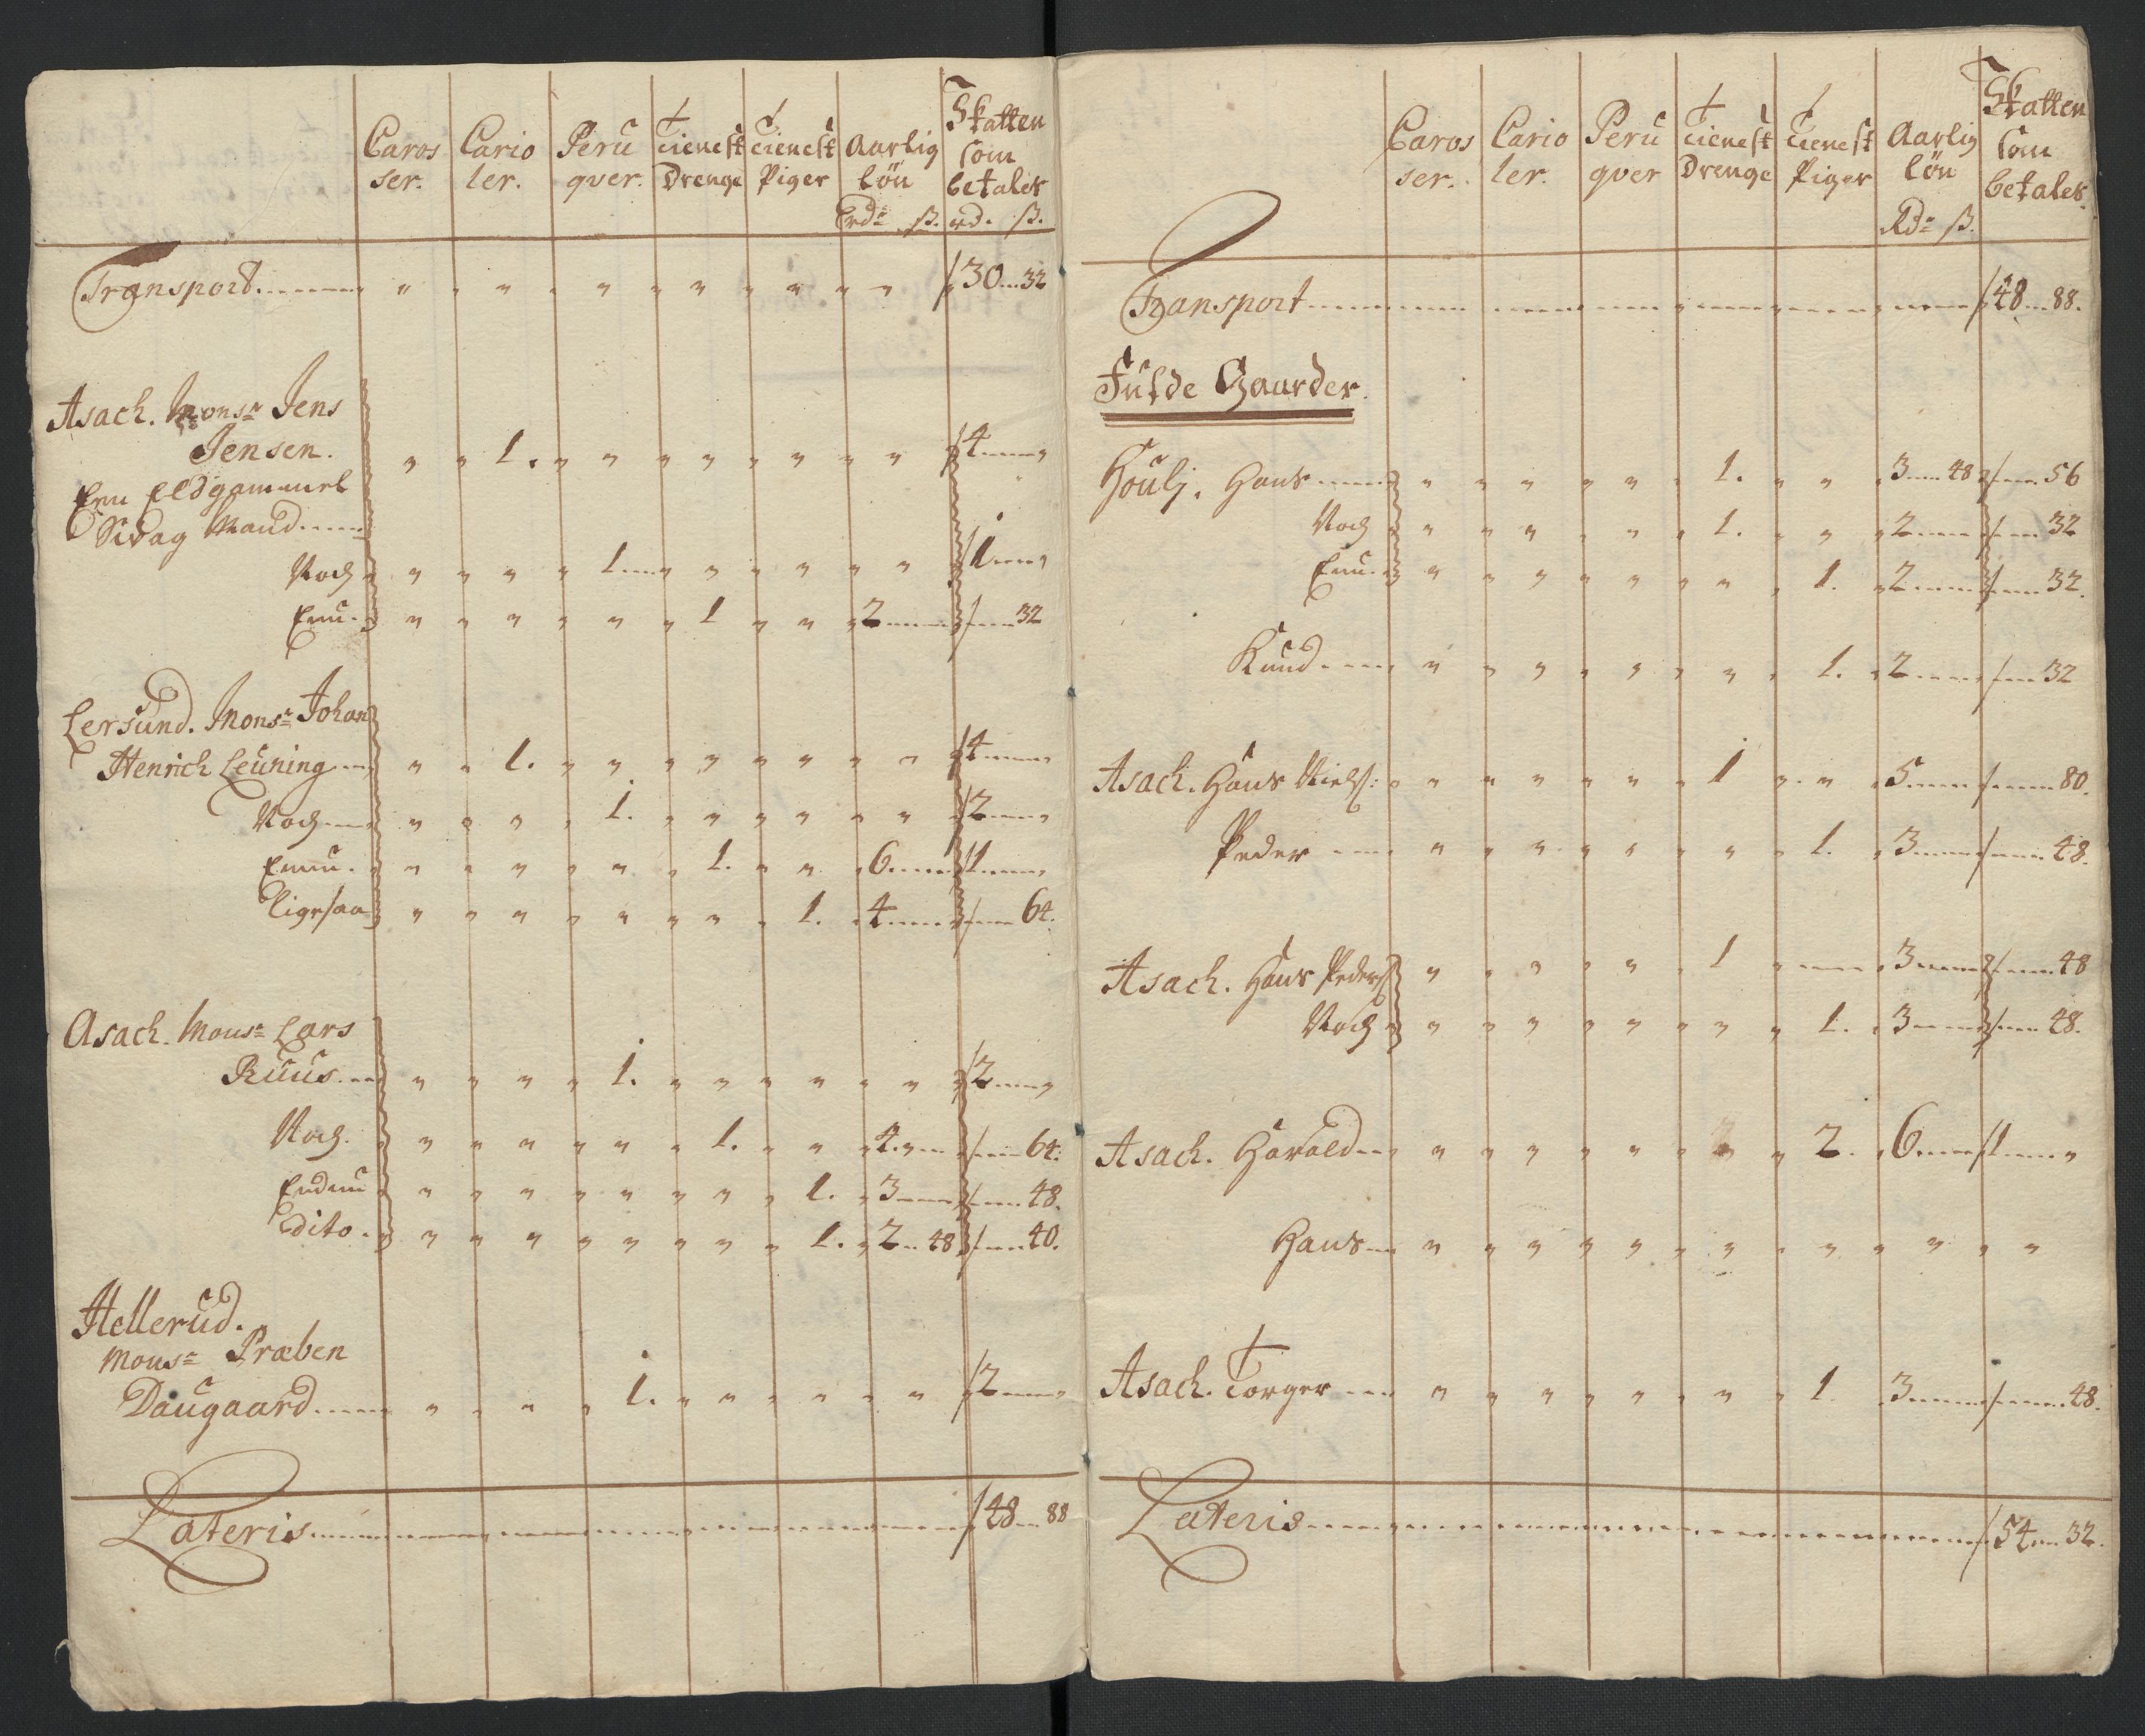 Caros Cario Peru Tienest Tienest Aarlig Skatten
ser. ler. qver. Drenge Piger Løn som
betales
rd. ß. rd. ß.
Transport 30 32
Asach. Monsr Jens
Jensen. 1. 4
Een Eldgammel
Mand
Noch 1 1
Enu 1 2 32
Lersund. Monsr Johan
Henrich Leuning 1. 4
Noch 1. 2
Ennu. 1. 6 1
Ligesaa 1. 4 64.
Asach. Monsr Lars
Ruus. 1. 2
Noch. 1. 4 64.
Endnu 1. 3 48.
dito. 1. 2 48 40.
Hellerud.
Monsr Præben
Daugaard 1. 2
Lateris 48 88
Caros Cario Peru Tienest Tienest Aarlig Skatten
ser. ler. qver Drenge Piger Løn som
betales
Rdr ß.
Transport 48 88.
Fulde Gaarder.
Houlj. Hans 1. 3 48 56
Noch 1. 2 32
Enu. 1. 2 32.
Knud 1. 2 32
Asach. Hans Nielß: 1 5 80.
Peder 1. 3 48.
Asach. Hans Pederß 1 3 48
Noch 1. 3 48.
Asach. Harald 2. 6 1
Hans
Asach. Torger 1 3 48.
Lateris 54 32.